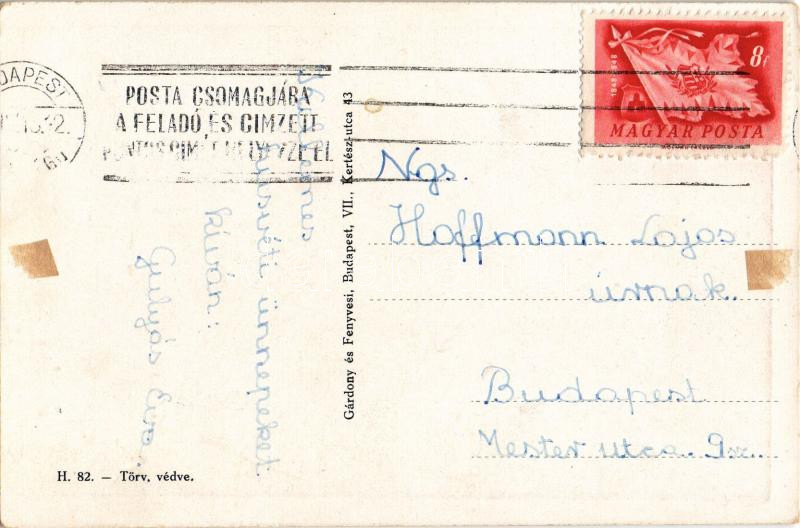 BUDAPEST
POSTA CSOMAGJÁBA
A FELADÓ ÉS CIMZETT
PONTOS CIMÉT HELYEZZE EL
8f
1848 1948
MAGYAR POSTA
Kellemes
húsvéti ünnepeket
kíván:
Gulyás Éva.
Gárdony és Fenyvesi, Budapest, VII., Kertész-utca 43
Ngs.
Hoffmann Lajos
úrnak.
Budapest
Mester utca. 9
H. 82. — Törv. védve.